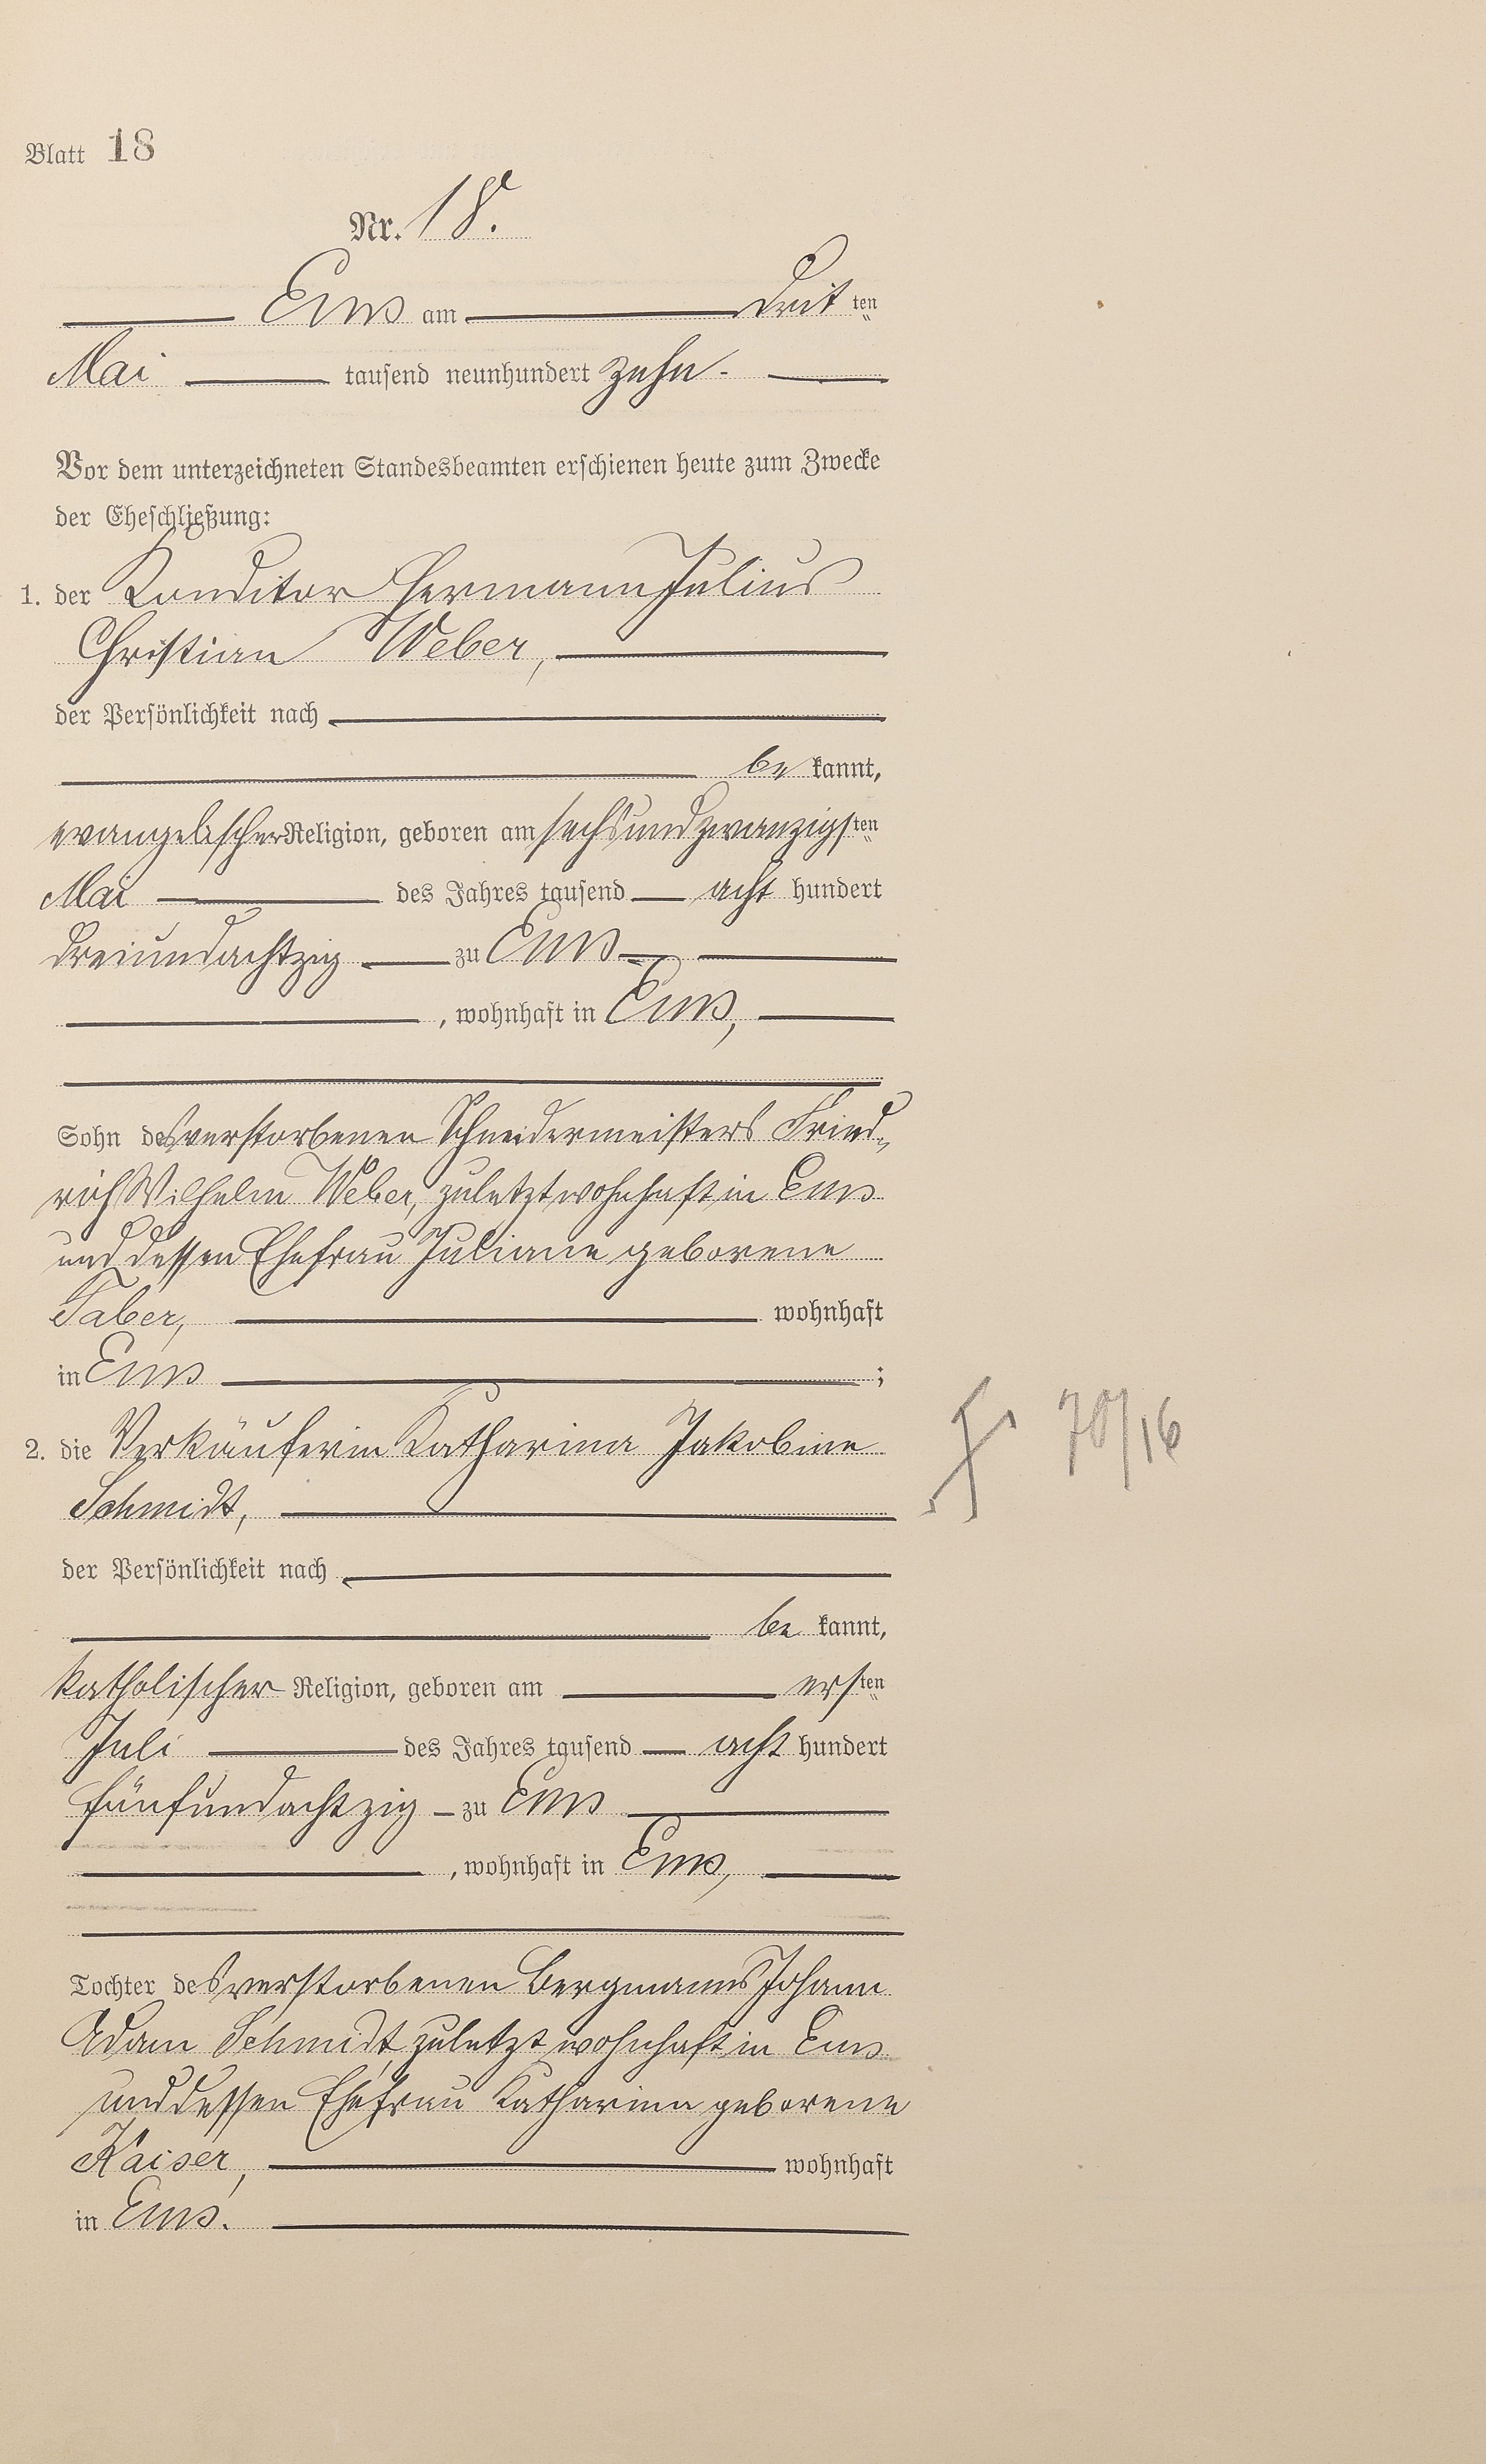 Blatt 18
Nr. 18.
Ems am Drit ten
Mai tausend neunhundert zehn.
Vor dem unterzeichneten Standesbeamten erschienen heute zum Zwecke
der Eheschließung:
1. der Konditor Hermann Julius
Christian Weber,
der Persönlichkeit nach
be kannt,
evangelischer Religion, geboren am sechsundzwanzigsten
Mai des Jahres tausend acht hundert
dreiundachtzig zu Ems
, wohnhaft in Ems,
Sohn des verstorbenen Schneidermeisters Fried-
rich Wilhelm Weber, zuletzt wohnhaft in Ems
und dessen Ehefrau Juliane geborene
Faber, wohnhaft
in Ems ;
2. die Verkäuferin Katharina Jakobine
Schmidt,
70/16
der Persönlichkeit nach
be kannt,
katholischer Religion, geboren am ersten
Juli des Jahres tausend acht hundert
fünfundachtzig zu Ems
, wohnhaft in Ems,
Tochter des verstorbenen Bergmanns Johann
Adam Schmidt, zuletzt wohnhaft in Ems
und dessen Ehefrau Katharina geborene
Kaiser, wohnhaft
in Ems.